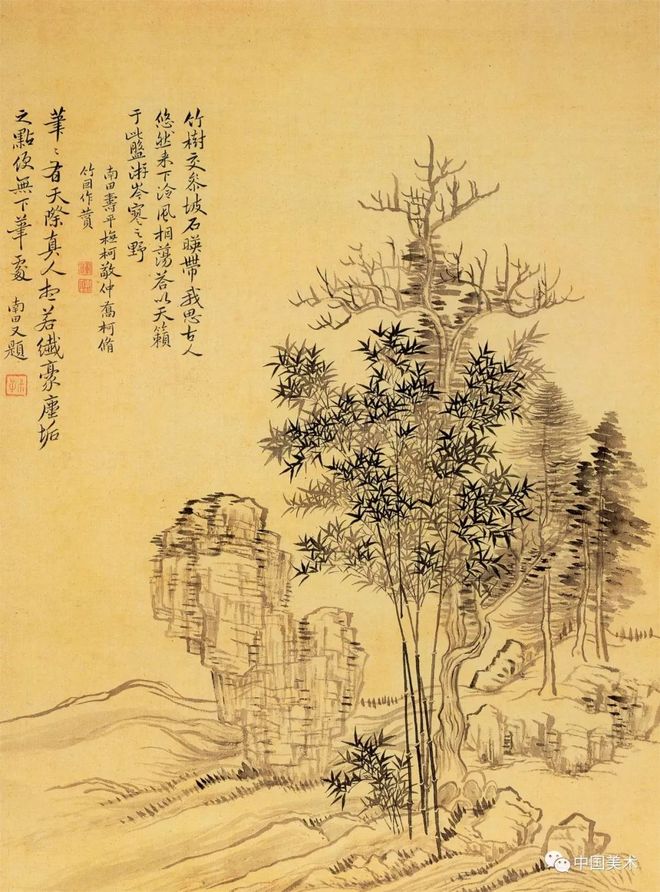 竹樹交參坡石暎帶我思古人
悠然来下泠風相蕩荅以天籟
于此盤游岑寒之野
南田壽平橅柯敬仲喬柯脩
竹因作贊
筆〻有天際真人想若纎豪塵垢
之點便無下筆處 南田又題
中国美术